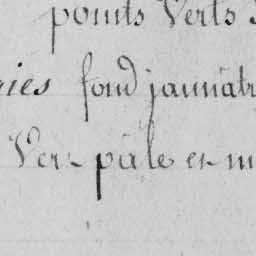 points Verts
fond jaunâtr
Vert pâle et